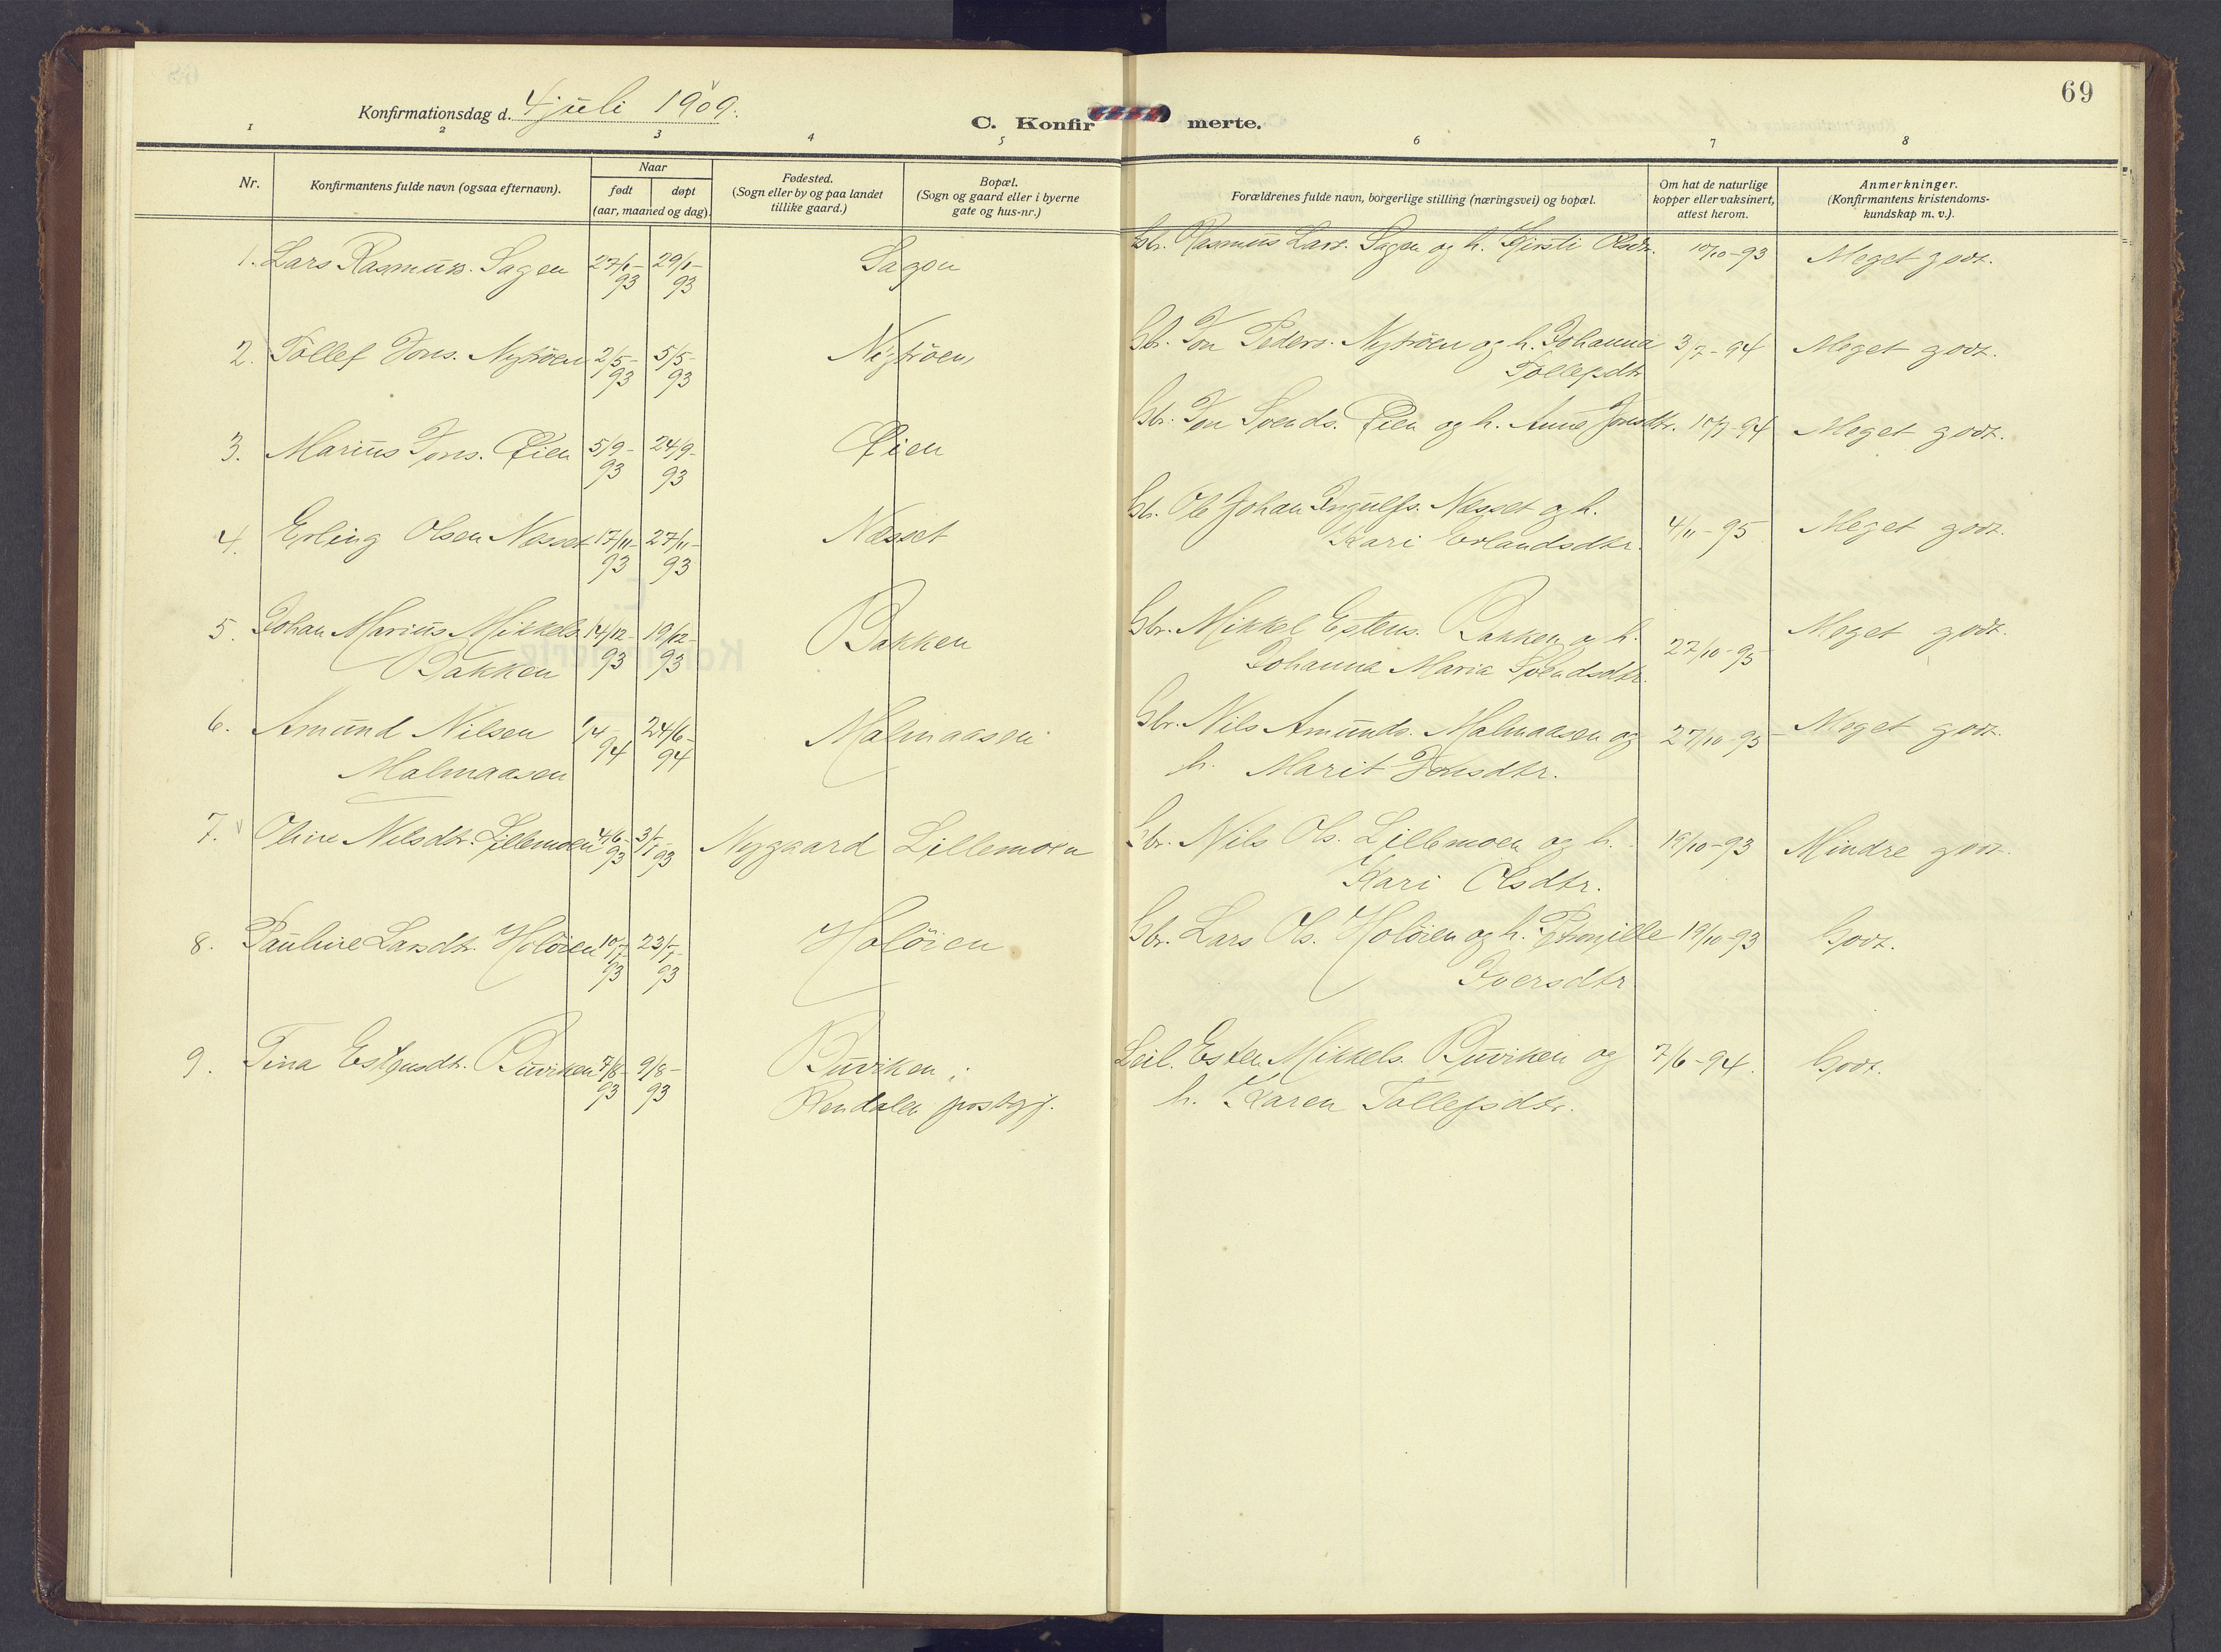 69
Konfirmationsdag d. 4 juli 1909.
C. Konfirmerte.
1 2 3 4 5 6 7 8
Nr.
Konfirmantens fulde navn (ogsaa efternavn).
Naar
født døpt
(aar, maaned og dag).
Fødested.
(Sogn eller by og paa landet
tillike gaard.)
Bopæl.
(Sogn og gaard eller i byerne
gate og hus-nr.)
Forældrenes fulde navn, borgerlige stilling (næringsvei) og bopæl.
Om hat de naturlige
kopper eller vaksinert,
attest herom.
Anmerkninger.
(Konfirmantens kristendoms-
kundskap m. v.).
1. Lars Rasmuss. Sagen 27/1- 29/1- Sagen Gbr. Rasmus Lars. Sagen og h. Kirsti Olsdtr. 10/10-93 Meget godt.
93 93
2. Tollef Jons. Nytrøen 2/5- 5/5- Nytrøen Gbr. Jon Peders. Nytrøen og h. Johanna 3/7-94 Meget godt.
93 93 Tollefsdtr
3. Marius Jons. Øien 5/9- 24/9- Øien Gbr. Jon Svends. Øien og h. Anne Jonsdtr. 10/7-94 Meget godt.
93 93
4. Erling Olsen Nesset 17/11- 27/11- Nesset Gbr. Ole Johan Ingulfs. Nesset og h. 4/11-95 Meget godt.
93 93 Kari Erlandsdtr.
5. Johan Marius Mikkels. 14/12- 19/12- Bakken Gbr. Mikkel Estens. Bakken og h. 27/10-95 Meget godt.
Bakken 93 93 Johanna Maria Svendsdtr.
6. Amund Nilsen 1/4- 24/6- Malmaasen Gbr. Nils Amunds. Malmaasen og 27/10-95 Meget godt.
Malmaasen 94 94 h. Marit Jonsdtr.
7. Oline Nilsdtr. Lillemoen 4/6- Nygaard Lillemoen Gbr. Nils Ols. Lillemoen og h. 19/10-93 Mindre godt.
93 93 Kari Olsdtr.
8. Pauline Larsdtr. Holøien 10/7- Holøien Gbr. Lars Ols. Holøien og h. Pernille 19/10-93 Godt.
93 93 Iversdtr
9. Tina Estensdtr. Buviken 7/8- 9/8- Buviken; Leil. Esten Mikkels. Buviken og 7/6-94. Godt.
93 93 Rendalen prestgj. h. Karen Tollefsdtr.